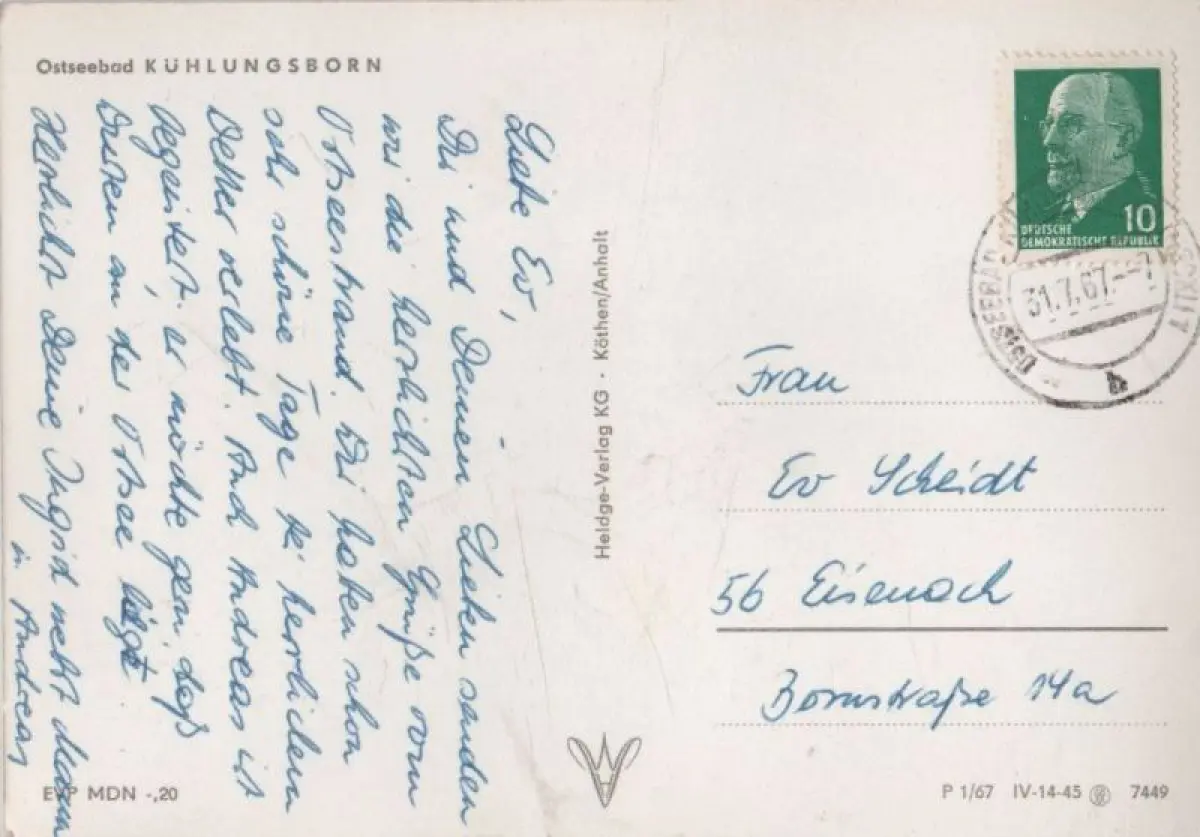 Ostseebad KÜHLUNGSBORN
Liebe Ev,
Dir und Deinen Lieben senden
wir die herzlichsten Grüße vom
Ostseestrand. Wir haben schon
sehr schöne Tage bei herrlichem
Wetter verlebt. Auch Andreas ist
begeistert, er möchte gern, daß
Dresden an der Ostsee liegt
Herzlichst Deine Ingrid nebst Mann
u. Andreas
EVP MDN -,20
Heldge-Verlag KG · Köthen/Anhalt
10
DEUTSCHE
DEMOKRATISCHE REPUBLIK
OSTSEEBAD
31.7.67.--7
Frau
Ev Scheidt
56 Eisenach
Bornstraße 14a
P 1/67 IV-14-45 7449